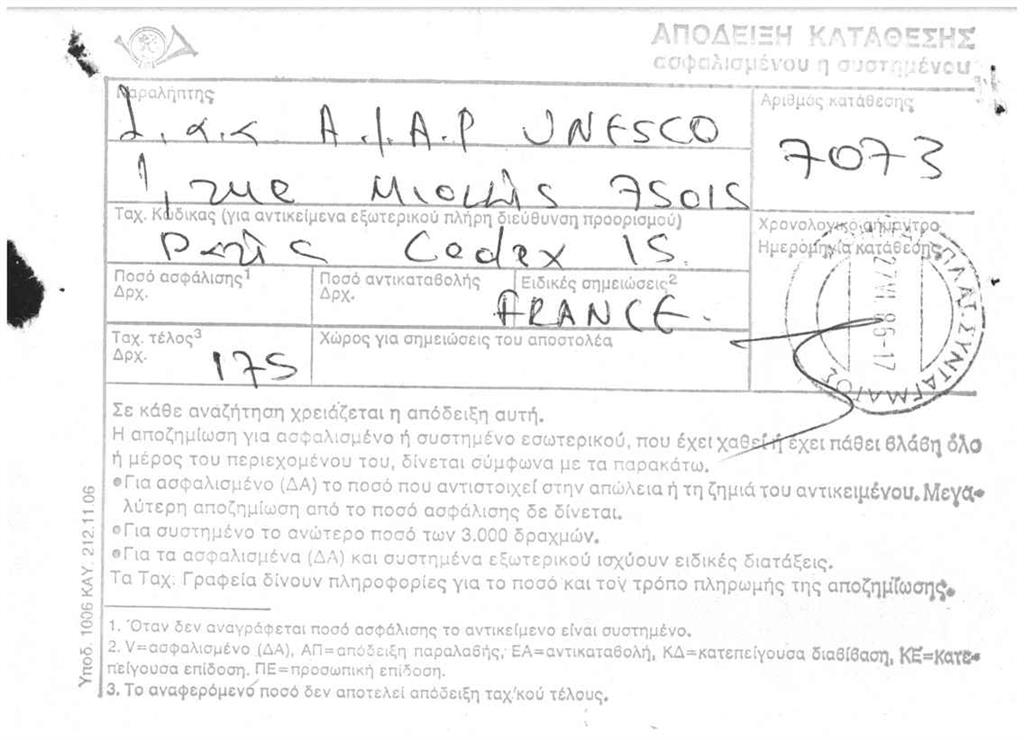 ΑΠΟΔΕΙΞΗ ΚΑΤΑΘΕΣΗΣ
ασφαλισμένου η συστημένου
Παραλήπτης
A.I.A.P UNESCO
Αριθμός κατάθεσης
7073
1, rue Miollis 75015
Ταχ. Κώδικας (για αντικείμενα εξωτερικού πλήρη διεύθυνση προορισμού)
Paris Cedex 15.
Χρονολογικό σήμαντρο
Ημερομηνία κατάθεσης
ΠΛΑΤ. ΣΥΝΤΑΓΜΑΤΟΣ
Ποσό ασφάλισης1
Δρχ.
Ποσό αντικαταβολής
Δρχ.
Ειδικές σημειώσεις2
FRANCE.
Ταχ. τέλος3
Δρχ.
175
Χώρος για σημειώσεις του αποστολέα
Σε κάθε αναζήτηση χρειάζεται η απόδειξη αυτή.
Η αποζημίωση για ασφαλισμένο ή συστημένο εσωτερικού, που έχει χαθεί ή έχει πάθει βλάβη όλο
ή μέρος του περιεχομένου του, δίνεται σύμφωνα με τα παρακάτω.
•Για ασφαλισμένο (ΔΑ) το ποσό που αντιστοιχεί στην απώλεια ή τη ζημιά του αντικειμένου. Μεγα-
λύτερη αποζημίωση από το ποσό ασφάλισης δε δίνεται.
•Για συστημένο το ανώτερο ποσό των 3.000 δραχμών.
•Για τα ασφαλισμένα (ΔΑ) και συστημένα εξωτερικού ισχύουν ειδικές διατάξεις.
Τα Ταχ. Γραφεία δίνουν πληροφορίες για το ποσό και τον τρόπο πληρωμής της αποζημίωσης.
1. Όταν δεν αναγράφεται ποσό ασφάλισης το αντικείμενο είναι συστημένο.
2. V=ασφαλισμένο (ΔΑ), ΑΠ=απόδειξη παραλαβής, ΕΑ=αντικαταβολή, ΚΔ=κατεπείγουσα διαβίβαση, ΚΕ=κατε-
πείγουσα επίδοση. ΠΕ=προσωπική επίδοση.
3. Το αναφερόμενο ποσό δεν αποτελεί απόδειξη ταχ'κού τέλους.
Υποδ. 1006 ΚΑΥ. 212.11.06